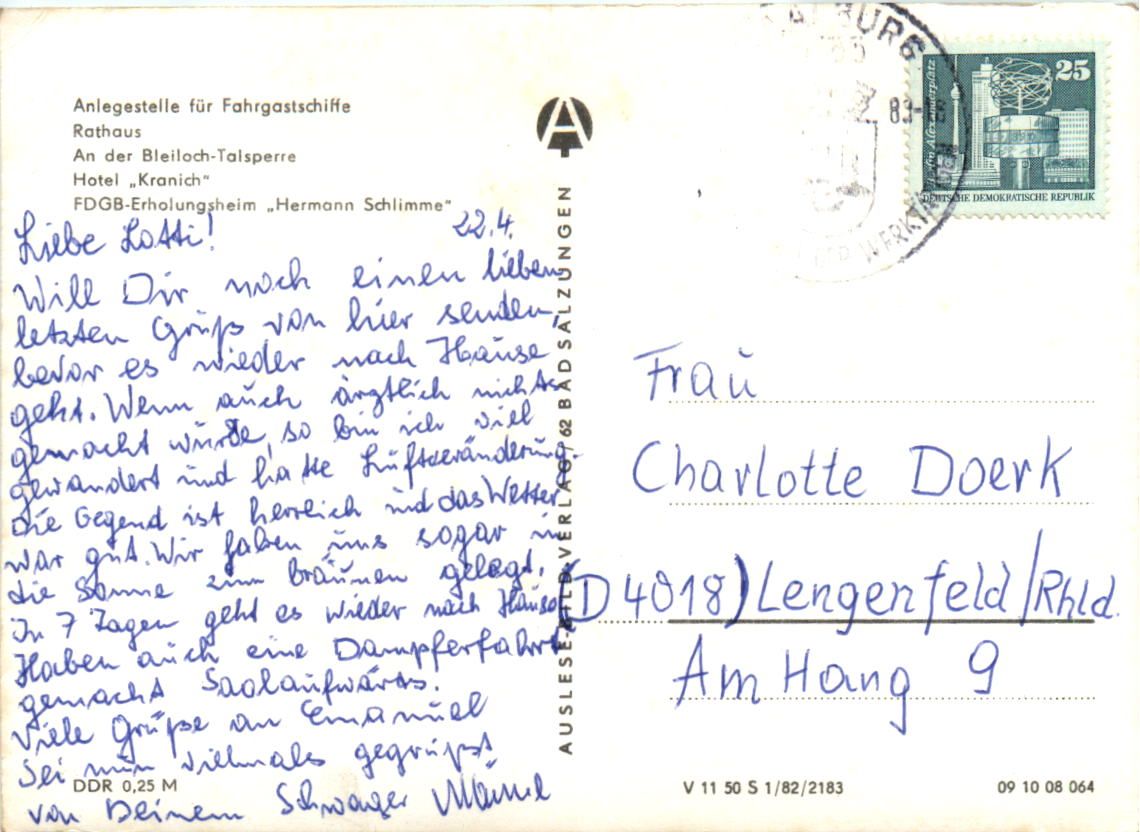 Anlegestelle für Fahrgastschiffe
Rathaus
An der Bleiloch-Talsperre
Hotel „Kranich“
FDGB-Erholungsheim „Hermann Schlimme“
22.4.
Liebe Lotti!
Will Dir noch einen lieben
letzten Gruß von hier senden,
bevor es wieder nach Hause
geht. Wenn auch ärztlich nichts
gemacht wurde, so bin ich viel
gewandert und hatte Luftveränderung.
Die Gegend ist herrlich und das Wetter
war gut. Wir haben uns sogar in
die Sonne zum bräunen gelegt.
In 7 Tagen geht es wieder nach Hause
Haben auch eine Dampferfahrt
gemacht Saalaufwärts.
Viele Grüße an Emanuel
Sei nun vielmals gegrüßt
von Deinem Schwager
DDR 0,25 M
AUSLESE-BILD-VERLAG / 62 BAD SALZUNGEN
A
BURG
WERKTÄ
25
Berlin Alexanderplatz
DEUTSCHE DEMOKRATISCHE REPUBLIK
Frau
Charlotte Doerk
(D 4018) Lengenfeld/Rhld.
Am Hang 9
V 11 50 S 1/82/2183
09 10 08 064